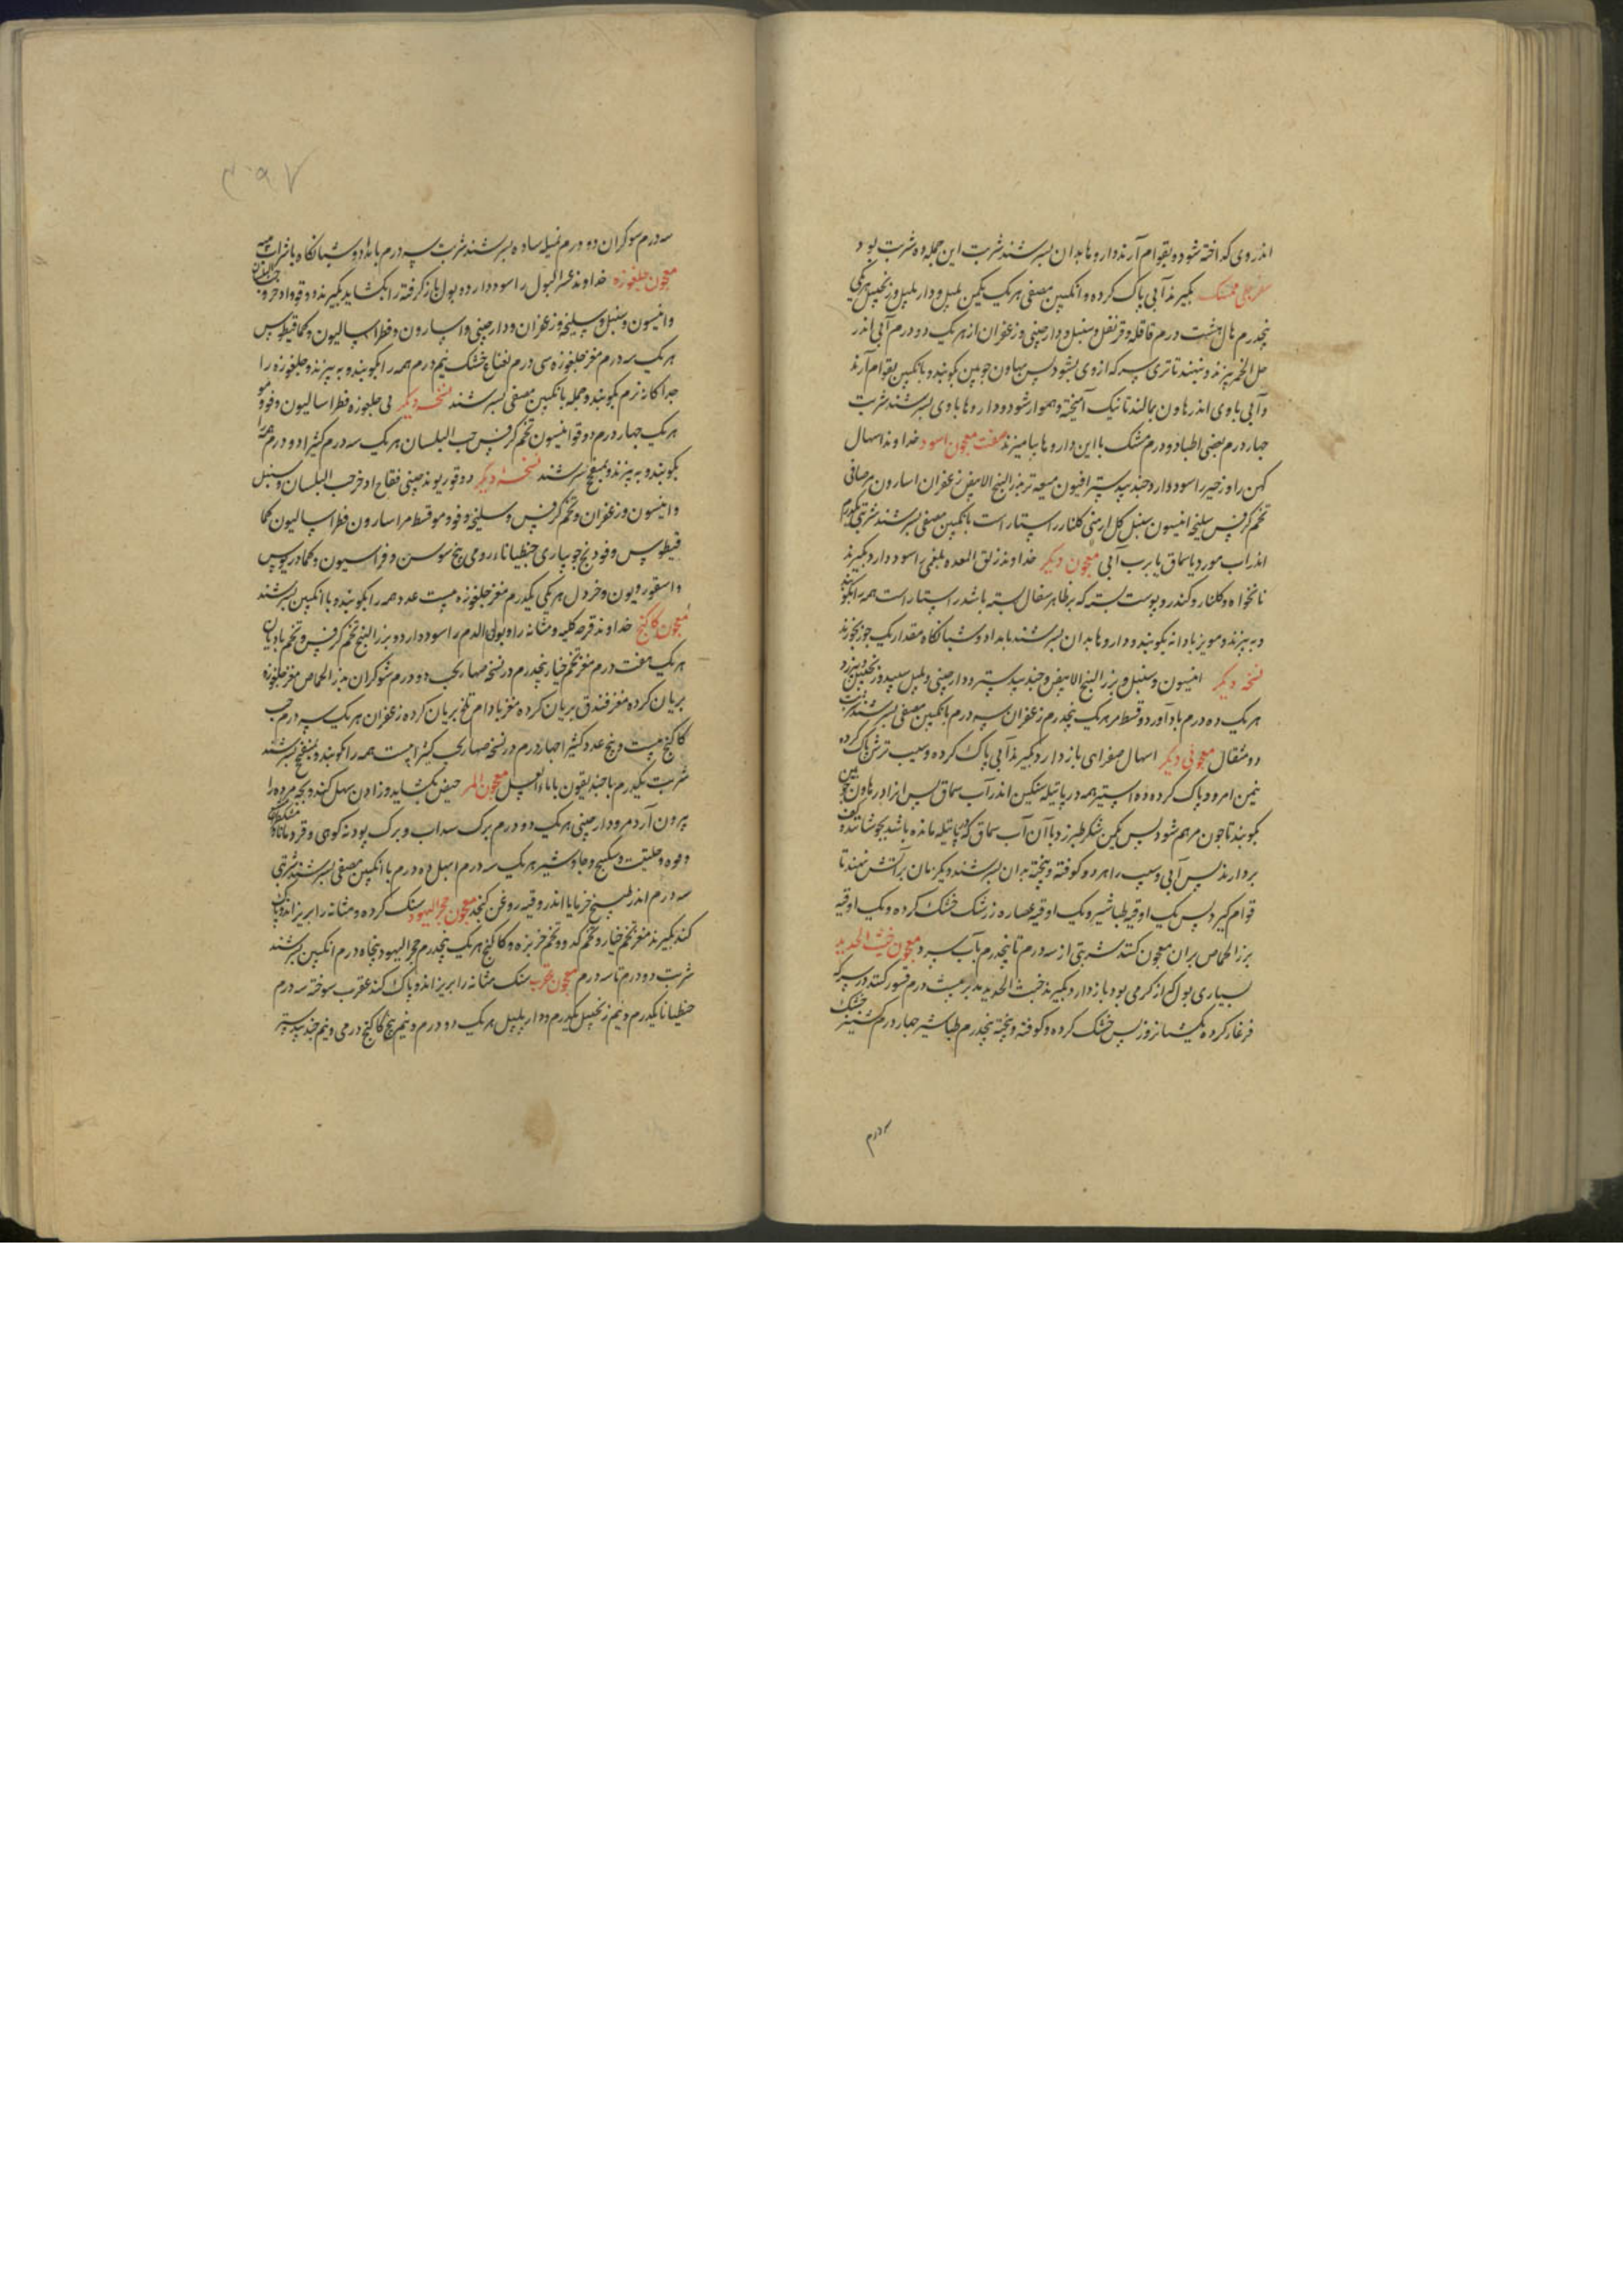 اندروی کداخته شود و بقوام آرند و داروها بدان بسرشند شربت این جمله ده شربت بود
سفرجلی ممسک بکیرند آبی پاک کرده و انکبین مصفی هریک یکمن پلپل و دارپلپل و زنجبیل هریکی
پنجدرم هال هشت درم قاقله و قرنفل و سنبل و دارچینی و زعفران از هریک دو درم آبی اندر
خل الخمر بپزند و بنهند تا تری سرکه از وی بشود پس بهاون چوبین بکوبند و با انکبین بقوام آرند
و آبی با وی اندر هاون بمالند تا نیک آمیخته و هموار شود و داروها با وی بسرشند شربت
چهار درم بعضی اطبا دو درم مشک با این داروها بیامیزند صفت معجون اسود خداوند اسهال
کهن را و زحیر را سود دارد جندبیدستر افیون میعه تر بزرالبنج الابیض زعفران اسارون مر صافی
تخم کرفس سلیخه انیسون سنبل کل ارمنی کلنار راستاراست بانکبین مصفی بسرشند شربتی یکدرم
اندر آب مورد یا سماق یا برب آبی معجون دیکر خداوند زلق المعده بلغمی را سود دارد بکیرند
نانخواه و کلنار و کندر و پوست پسته که بر ظاهر سفال پسته باشد راستاراست همه را بکوبند
و ببیزند و مویز با دانه بکوبند و داروها بدان بسرشند بامداد و شبانکاه مقدار یک جوز بخورند
نسخه دیکر انیسون و سنبل و بزرالبنج الابیض و جندبیدستر و دارچینی و پلپل سپید و زنجبیل
هریک ده درم بادآورد و قسط مر هریک پنجدرم زعفران سه درم بانکبین مصفی بسرشند شربت
دو مثقال معجونی دیکر اسهال صفرایی باز دارد بکیرند آبی پاک کرده و سیب ترش پاک کرده
نیمن امرود پاک کرده ده استیر همه در پاتیله سنکین اندر آب سماق پس اندر هاون
بکوبند تا چون مرهم شود پس یکمن شکر طبرزد با آن آب سماق که در پاتیله مانده باشد بجوشانند و کف
بردارند پس آبی و سیب را هر دو کوفته و پخته بدان بسرشند و یکزمان بر آتش نهند تا
قوام کیرد پس یک اوقیه طباشیر و یک اوقیه عصاره زرشک خشک کرده و یک اوقیه
بزرالحماض بران معجون کنند شربتی از سه درم تا پنجدرم بآب سرد معجون خبث الحدید
بسیاری بول که از کرمی بود باز دارد بکیرند خبث الحدید مدبر بیست درم قسور کنند در سرکه
فرغار کرده یکشبانروز پس خشک کرده و کوفته و پخته پنجدرم طباشیر چهار درم کشنیز خشک
سه درم
۲۰۹۷
سه درم سوکران دو درم بسرشند شربت سه درم بامداد و شبانکاه با شراب
معجون جلغوزه خداوند عسر البول را سود دارد و بول باز کرفته را بکشاید بکیرند دوقو و اذخر و حب البلسان
و انیسون و سنبل و سلیخه و زعفران و دارچینی و اسارون و فطراسالیون و کمافیطوس
هریک سه درم مغز جلغوزه سی درم نعناع خشک نیم درم همه را بکوبند و ببیزند و جلغوزه را
جداکانه نرم بکوبند و جمله بانکبین مصفی بسرشند نسخه دیکر بی جلغوزه فطراسالیون و فو و مو
هریک چهار درم دوقو انیسون تخم کرفس حب البلسان هریک سه درم کثیرا دو درم همه را
بکوبند و ببیزند و بمیفختج بسرشند نسخه دیکر دوقو ریوند چینی فقاح اذخر حب البلسان و سنبل
و انیسون و زعفران و تخم کرفس و سلیخه و فو و مو قسط مر اسارون فطراسالیون کما
فیطوس و فودنج جویباری جنطیانا رومی بیخ سوسن و فراسیون و کمادریوس
و اسقوردیون و خردل هریکی یکدرم مغز جلغوزه بیست عدد همه را بکوبند و با انکبین بسرشند
معجون کاکنج خداوند قرحه کلیه و مثانه را و بول الدم را سود دارد بزرالبنج تخم کرفس و تخم بادیان
هریک هفت درم مغز تخم خیار پنجدرم و در نسخه صهاربخت دو درم شوکران بزرالحماض مغز جلغوزه
بریان کرده مغز فندق بریان کرده مغز بادام تلخ بریان کرده زعفران هریک سه درم حب
کاکنج بیست و پنج عدد کثیرا چهار درم و در نسخه صهاربخت کثیرا بیست همه را بکوبند و بمیفختج بسرشند
شربت یکدرم با خندیقون یا ماء العسل معجون المر حیض بکشاید و زادن سهل کند و بچه مرده را
بیرون آرد مر و دارچینی هریک دو درم برک سداب و برک پودنه کوهی و قردمانا
و فوه و حلتیت و سکبینج و جاوشیر هریک سه درم ابهل ده درم با انکبین مصفی بسرشند شربتی
سه درم اندر طبیخ خرما یا اندر وقیه روغن کنجد معجون حجر الیهود سنک کرده و مثانه را بریزاند و پاک
کند بکیرند مغز تخم خیار و تخم کدو و تخم خربزه و کاکنج هریک پنجدرم حجر الیهود پنجاه درم انکبین بسرشند
شربت دو درم تا سه درم معجون عقرب سنک مثانه را بریزاند و پاک کند عقرب سوخته سه درم
جنطیانا یکدرم و نیم زنجبیل یکدرم و دارپلپل هریک دو درم و نیم بیخ کاکنج درمی و نیم جندبیدستر